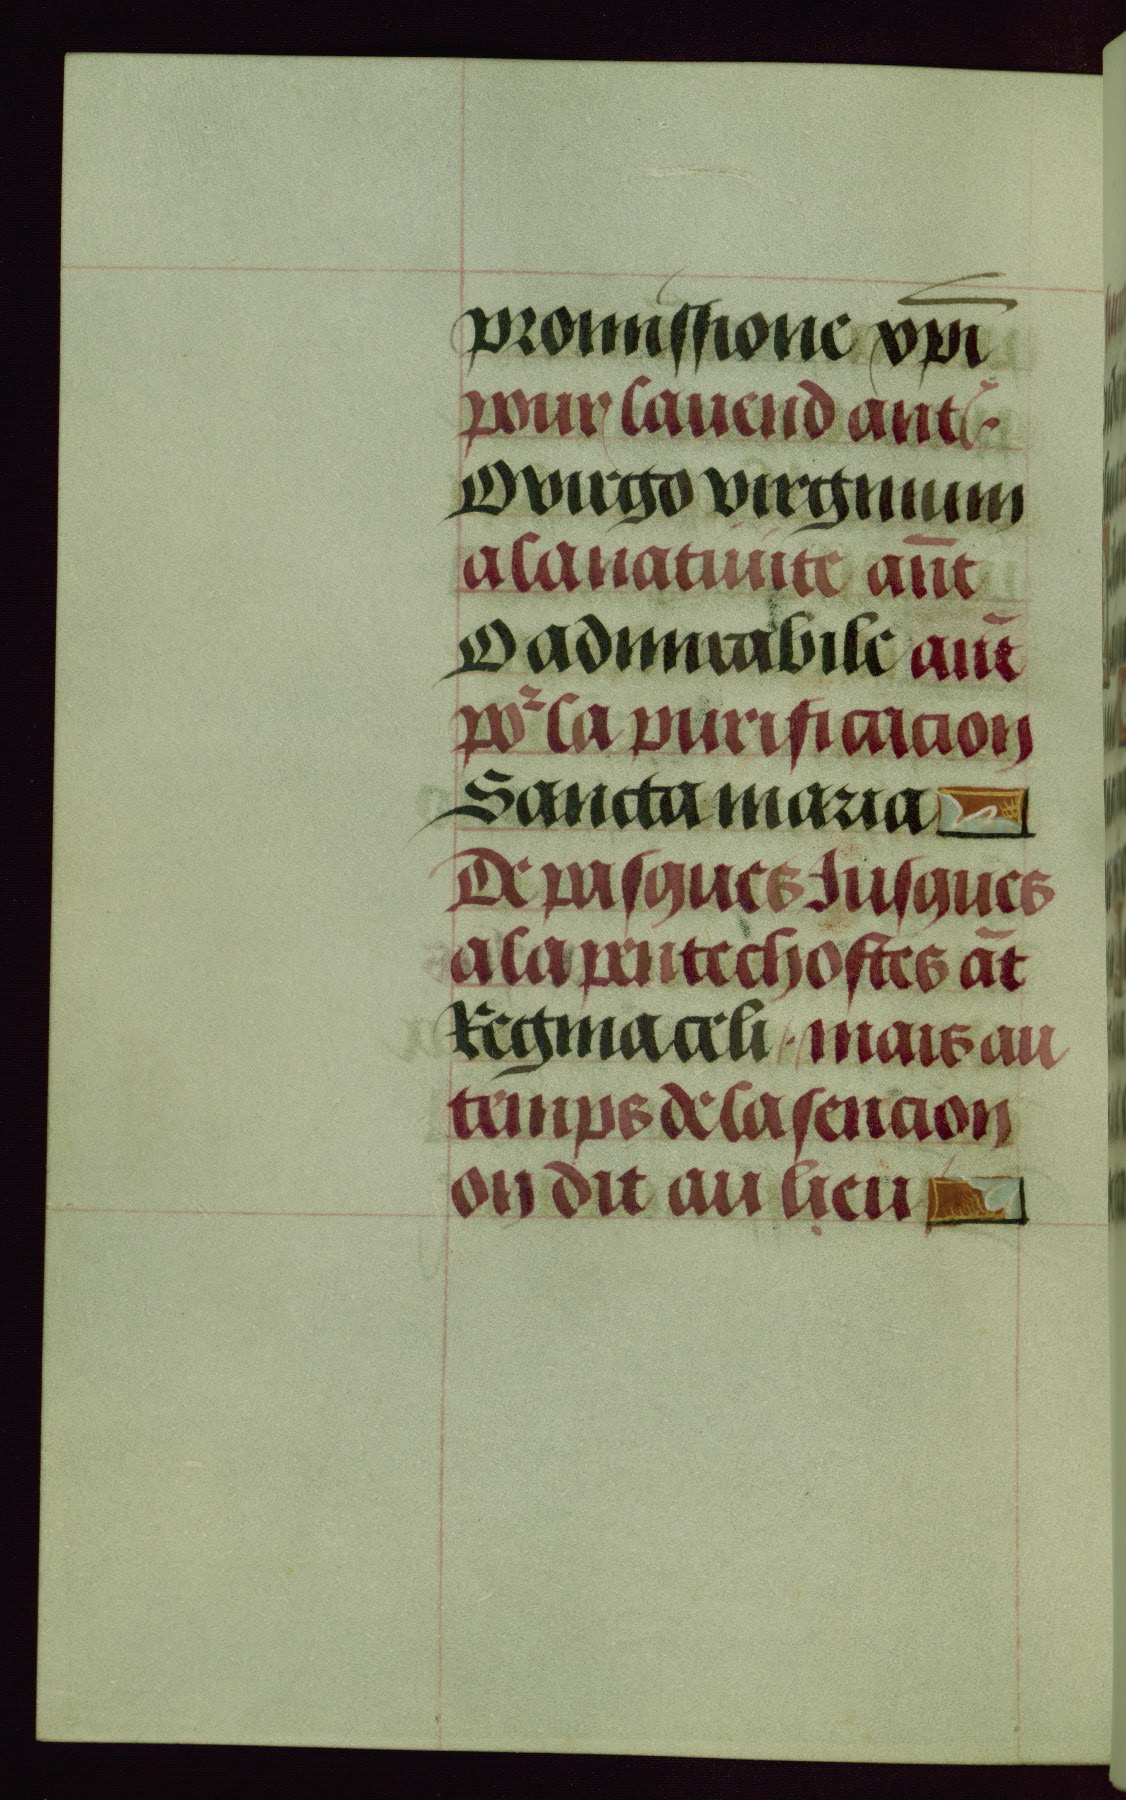 promissione xp̄i
pour lauend ant
O virgo virginum
a la natiuite an̄t
O admirabile an̄t
poʳ la purificacion
Sancta maria
De pasques Jusques
a la pentechostes āt
Regina celi · mais au
temps de lasencion
on dit au lieu